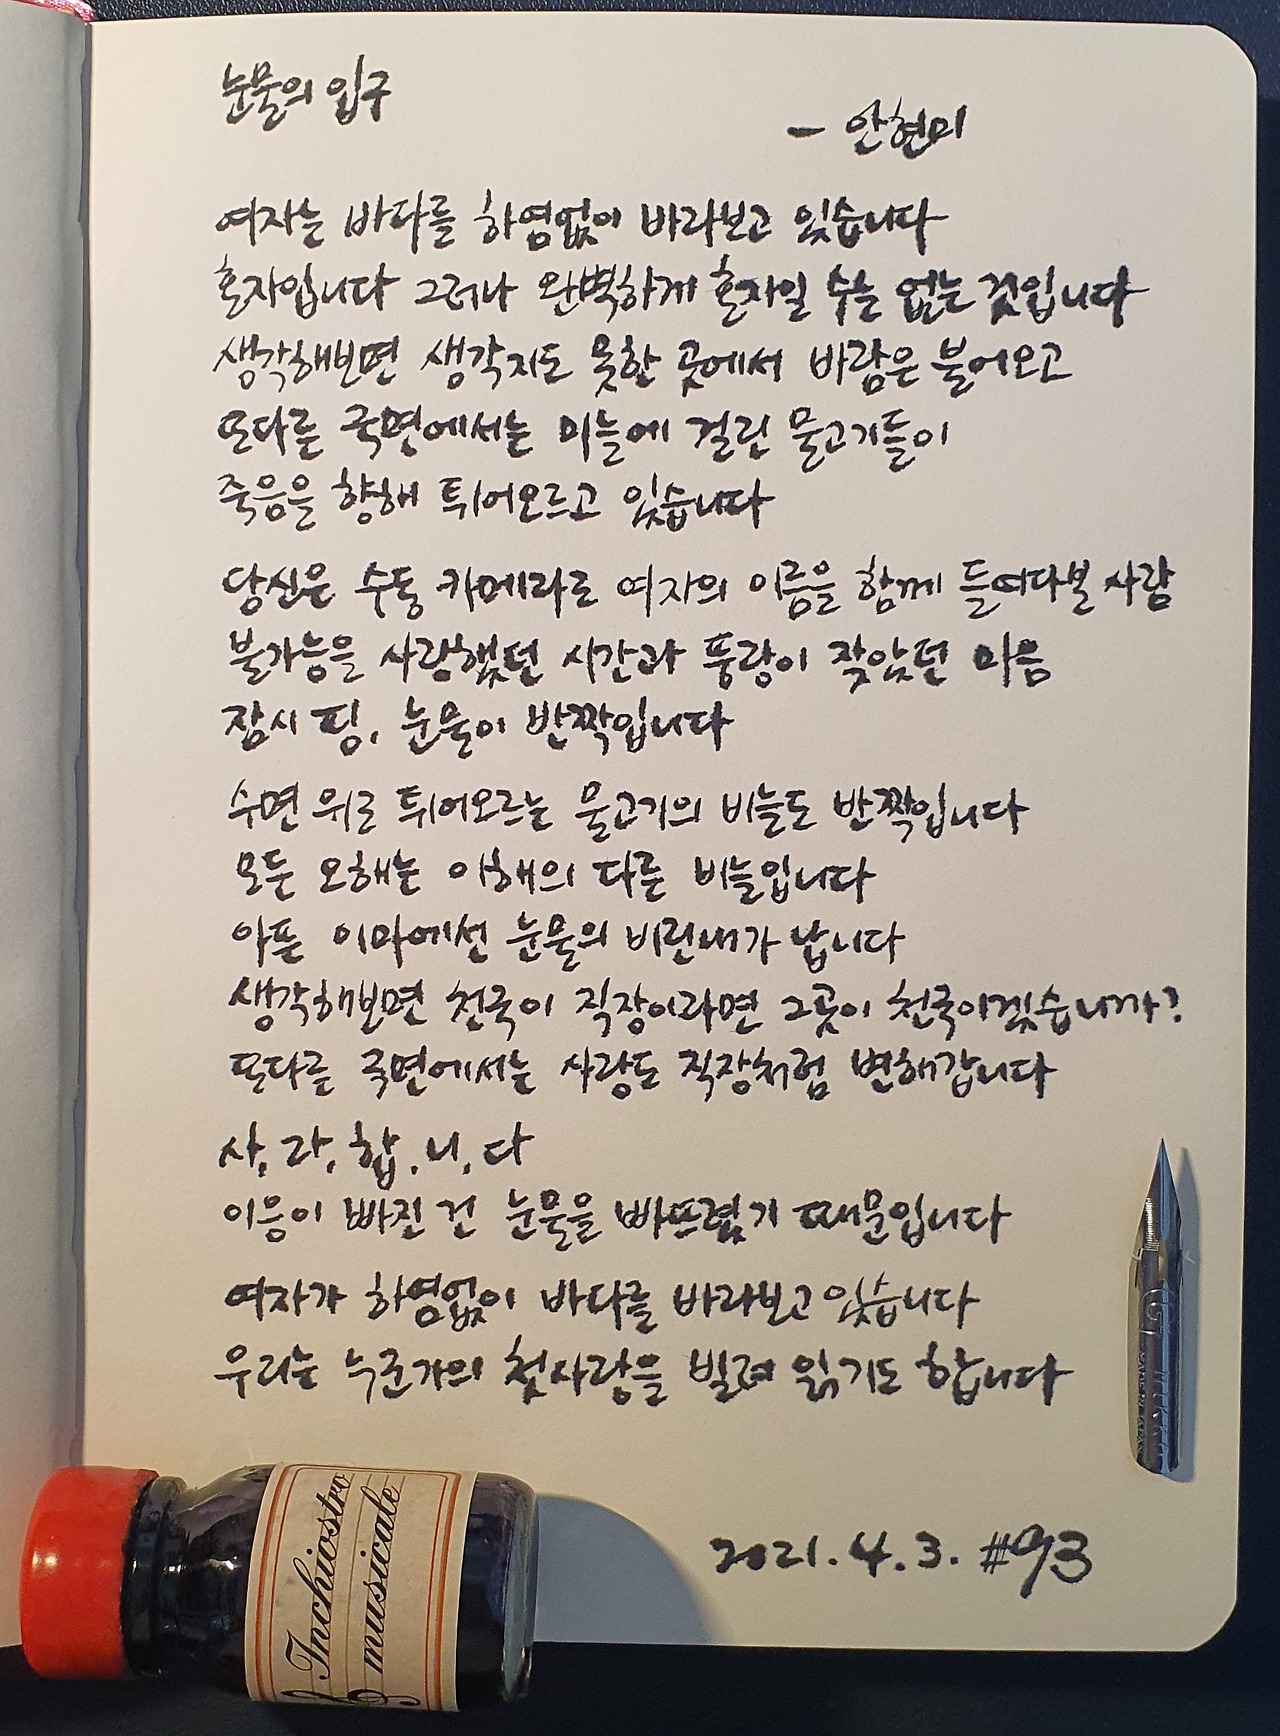 눈물의 입구
- 안현미
여자는 바다를 하염없이 바라보고 있습니다
혼자입니다 그러나 완벽하게 혼자일 수는 없는 것입니다
생각해보면 생각지도 못한 곳에서 바람은 불어오고
또다른 국면에서는 미늘에 걸린 물고기들이
죽음을 향해 튀어오르고 있습니다
당신은 수동 카메라로 여자의 이름을 함께 들여다볼 사람
불가능을 사랑했던 시간과 풍랑이 잦았던 마음
잠시 핑, 눈물이 반짝입니다
수면 위로 튀어오르는 물고기의 비늘도 반짝입니다
모든 오해는 이해의 다른 비늘입니다
아픈 이마에선 눈물의 비린내가 납니다
생각해보면 천국이 직장이라면 그곳이 천국이겠습니까?
또다른 국면에서는 사랑도 직장처럼 변해갑니다
사, 라, 합, 니, 다
이응이 빠진 건 눈물을 빠뜨렸기 때문입니다
여자가 하염없이 바다를 바라보고 있습니다
우리는 누군가의 첫사랑을 빌려 읽기도 합니다
2021. 4. 3. #93
Inchiostro
musicale